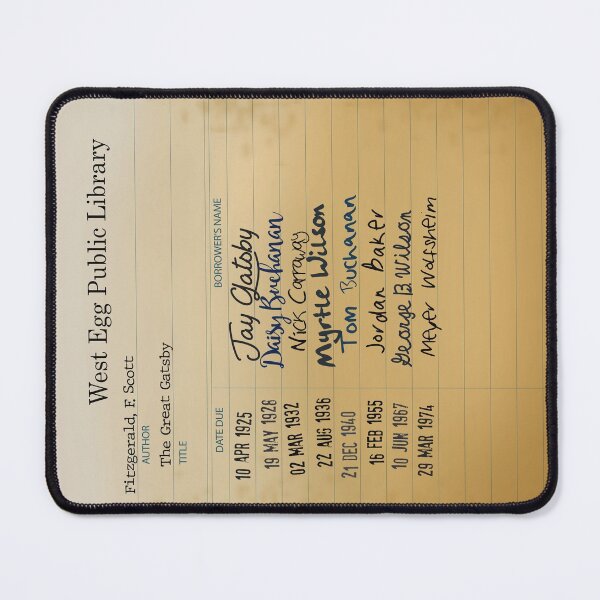 West Egg Public Library
Fitzgerald, F. Scott
AUTHOR
The Great Gatsby
TITLE
DATE DUE BORROWER'S NAME
10 APR 1925 Jay Gatsby
19 MAY 1928 Daisy Buchanan
02 MAR 1932 Nick Carraway
22 AUG 1936 Myrtle Wilson
21 DEC 1940 Tom Buchanan
16 FEB 1955 Jordan Baker
10 JUN 1967 George B. Wilson
29 MAR 1974 Meyer Wolfsheim